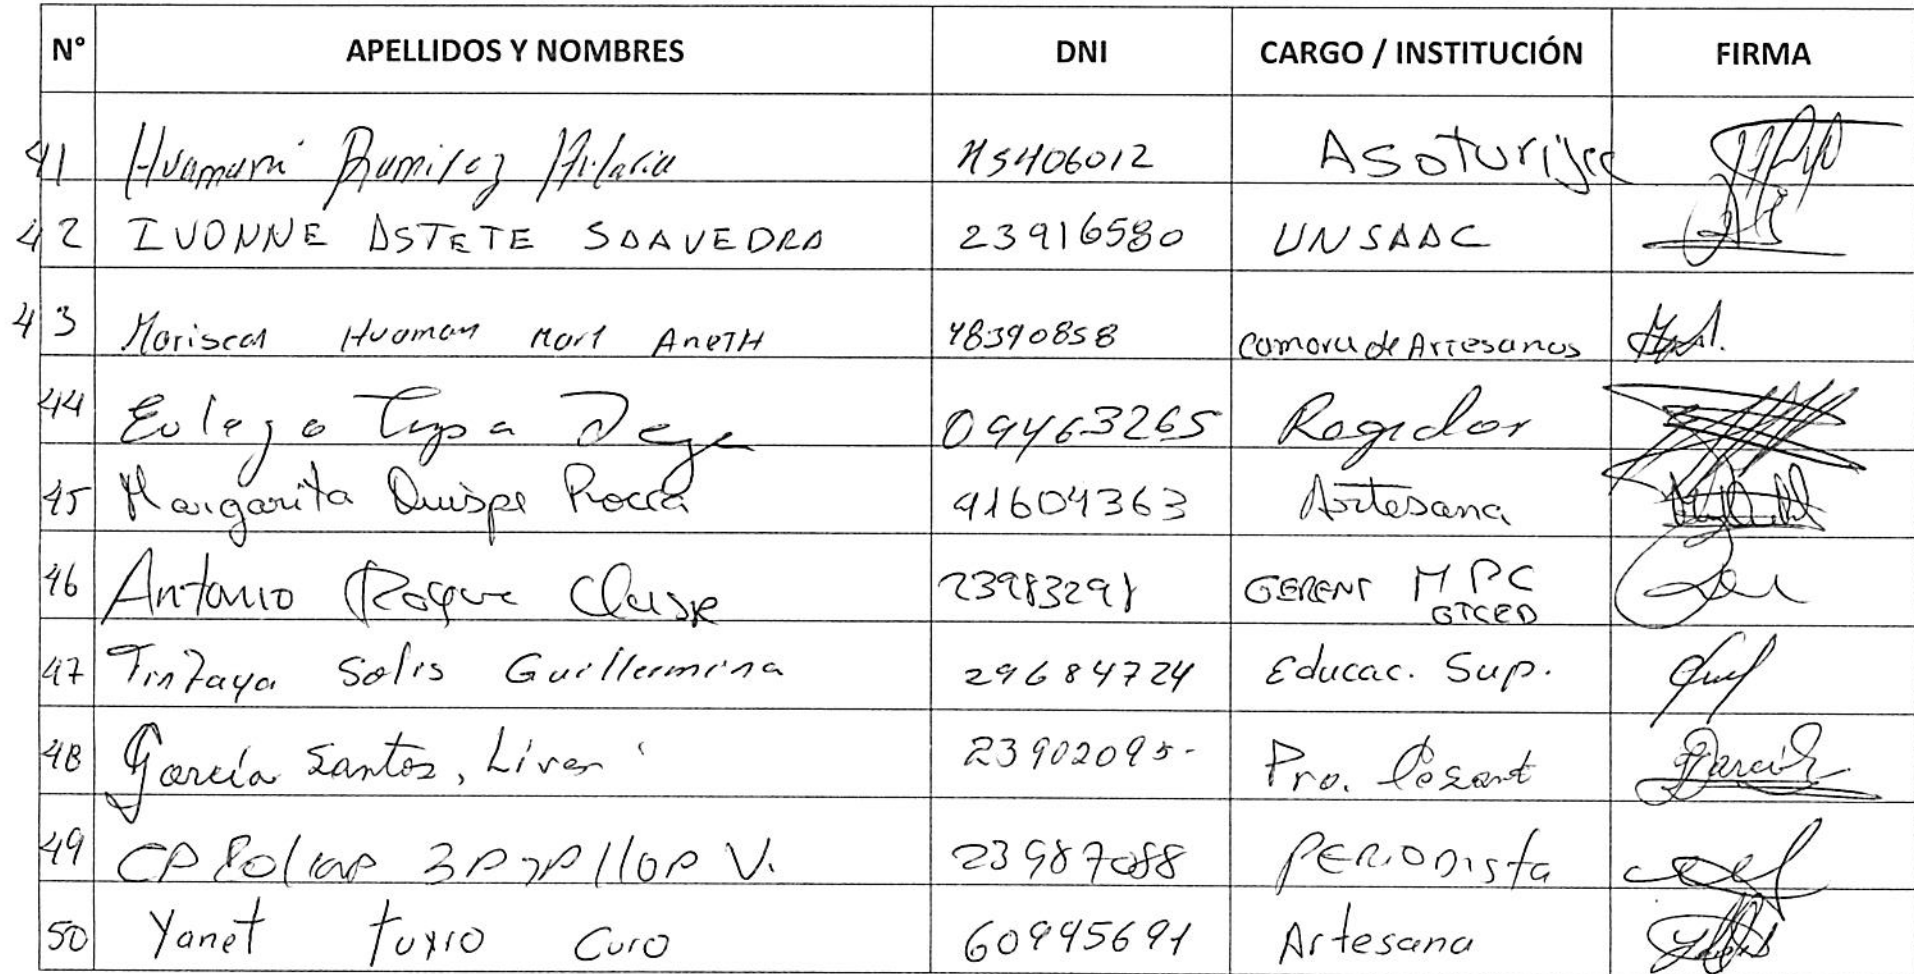 N° APELLIDOS Y NOMBRES DNI CARGO / INSTITUCIÓN FIRMA
41 Huamani Ramirez Hilaria 45406012
42 IVONNE ASTETE SAAVEDRA 23916580 UNSAAC
43 Mariscal Huaman Mari AneTH 48390858 Camara de Artesanos
44 09463265 Regidor
45 Margarita Quispe Rocca 41604363 Artesana
46 Antonio Roque 23983291 GERENT MPC
47 Tintaya Solis Guillermina 29684724 Educac. Sup.
48 García Santos, 23902095- Pro.
49 V. 23987088 PERIODISTA
50 Yanet 60945691 Artesana